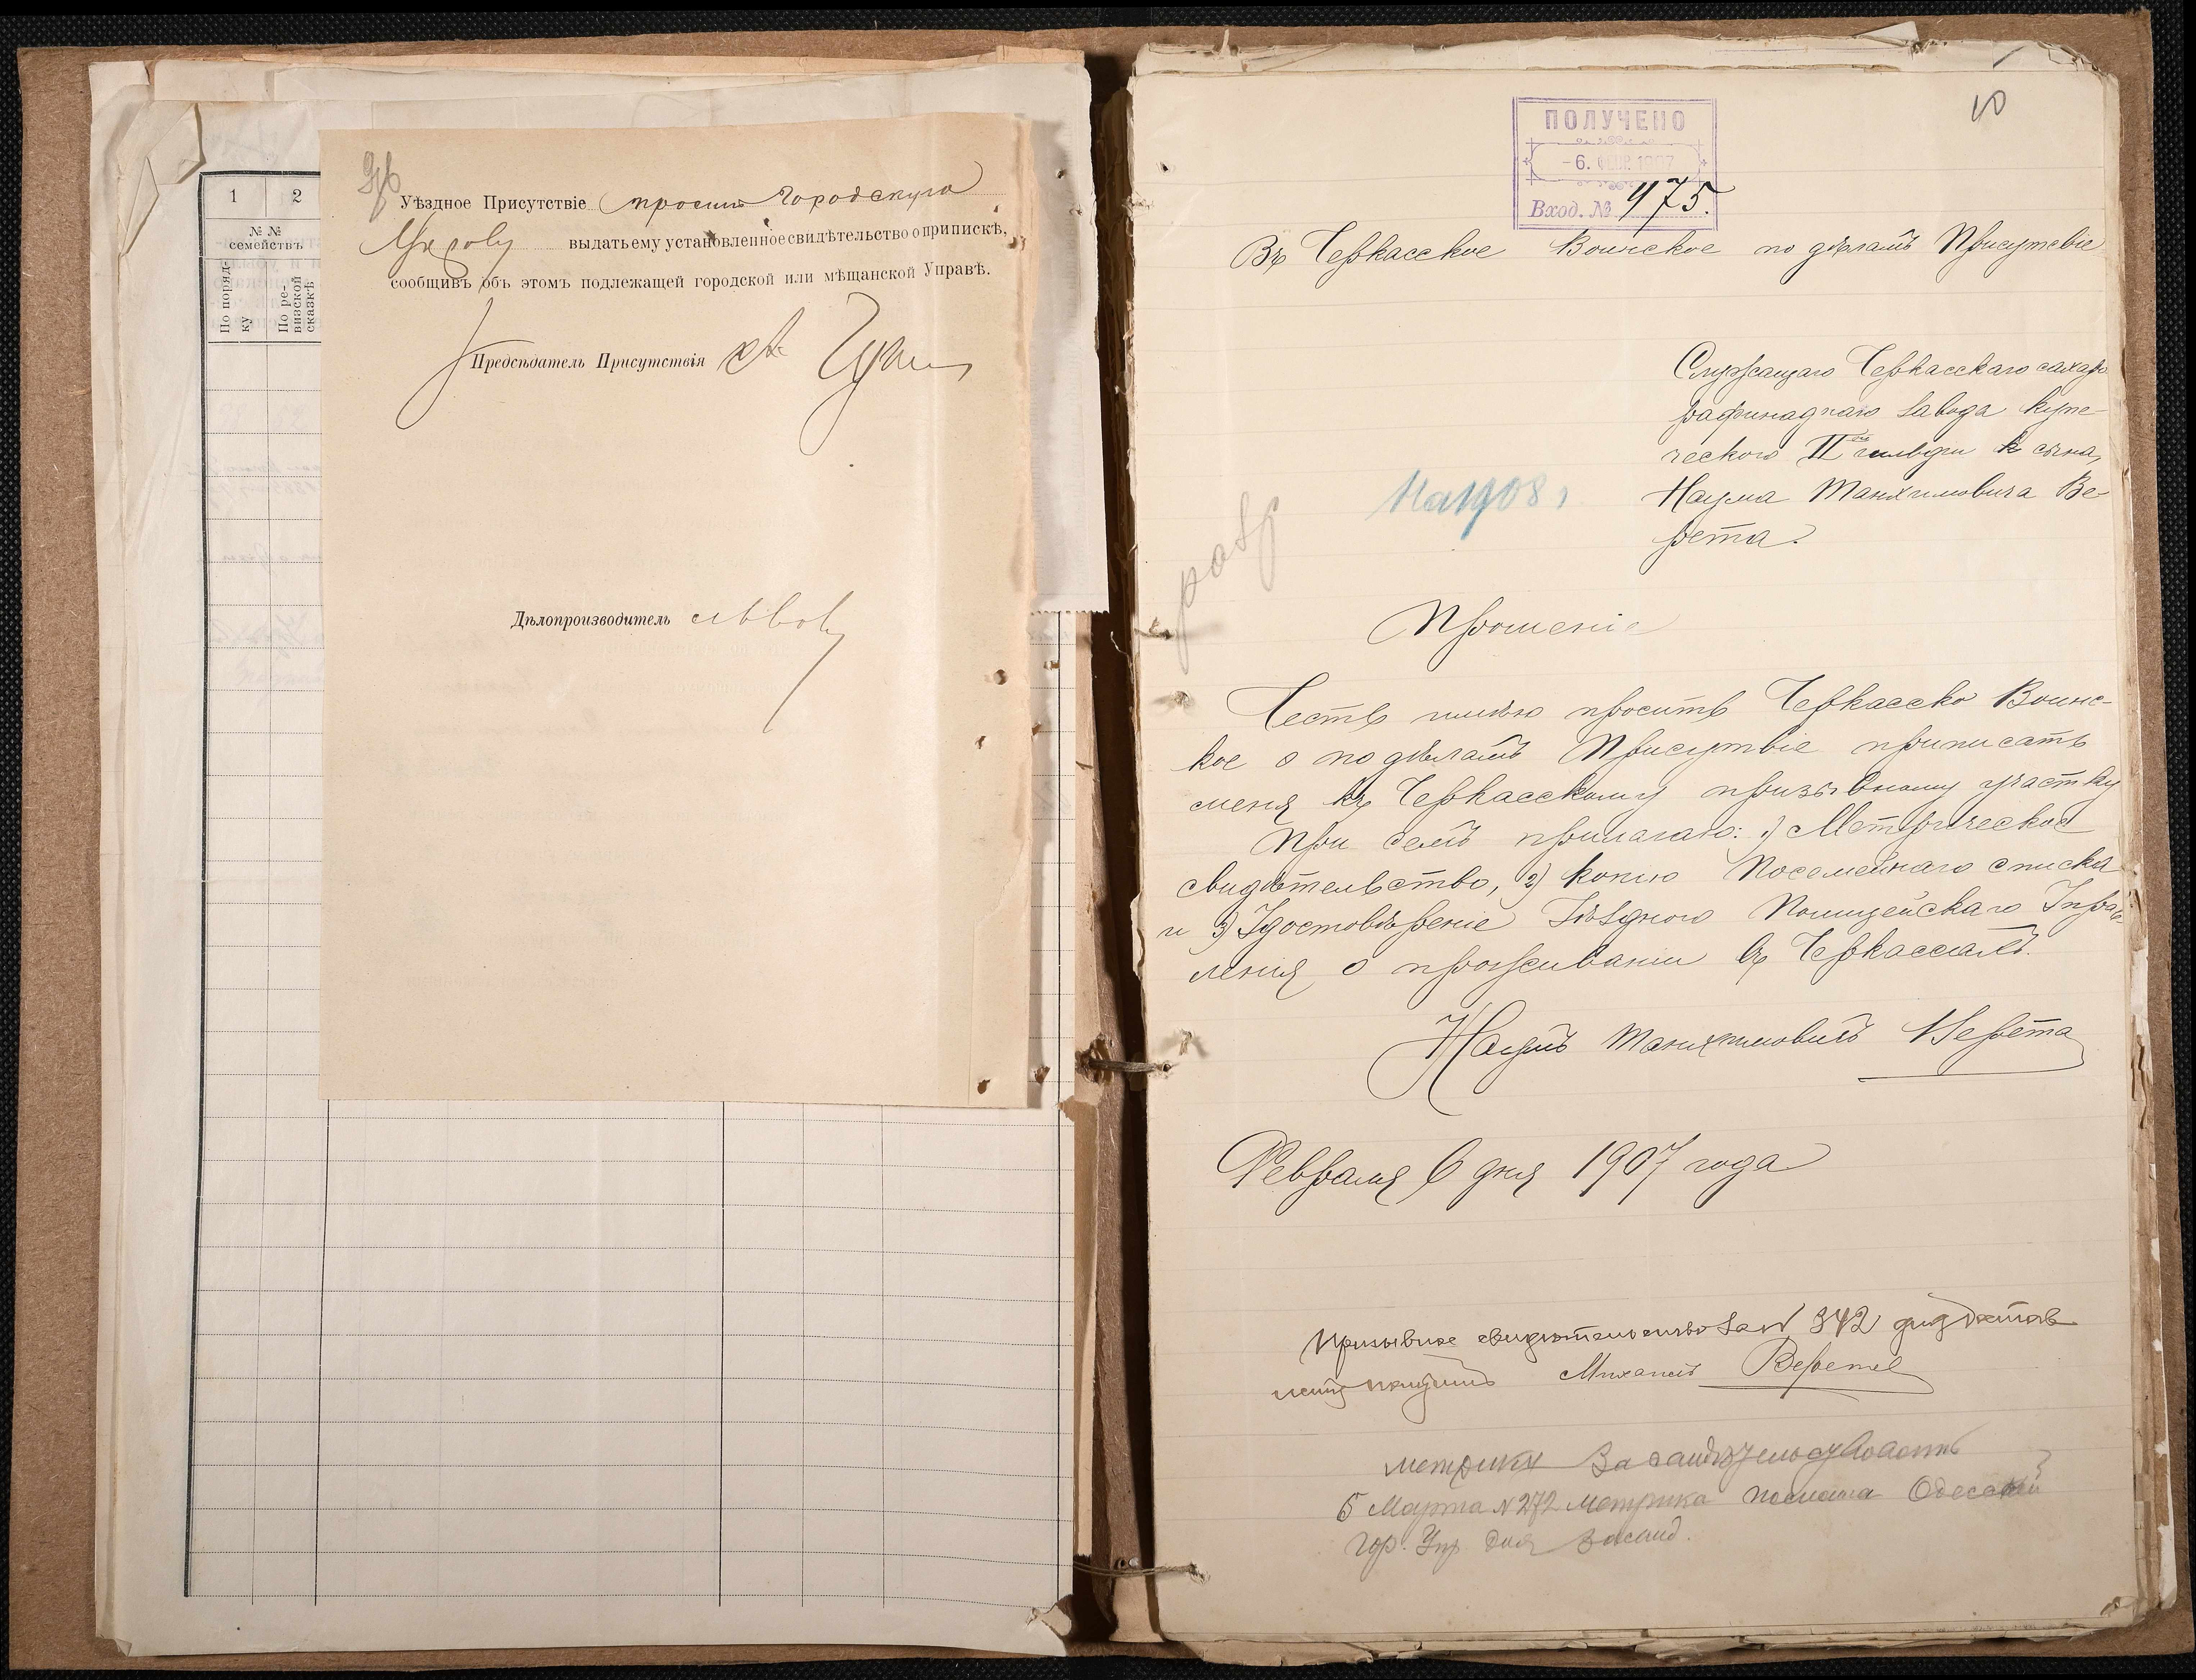 1
2
№ №
семействъ
По поряд-
ку
По ре-
визской
сказкѣ
Уѣздное Присутствіе проситъ Городскую
Управу выдать ему установленное свидѣтельство о припискѣ,
сообщивъ объ этомъ подлежащей городской или мѣщанской Управѣ.
Предсѣдатель Присутствія
Дѣлопроизводитель
ПОЛУЧЕНО
-6. ФЕВ. 1907
Вход. № 975.
Въ Черкасское Воинское по дѣламъ Присутсвіе
Служащаго Черкасскаго сахаро
рафинаднаго завода купе-
ческого II ой гильдіи сына,
Наума Манхимовича Ве-
рета.
На 1908 г
Прошеніе
Честь имѣю просить Черкасско Воинс-
кое о по дѣламъ Присутвіе приписать
меня къ Черкасскому призывному участку
При семъ прилагаю: 1) Метрическое
свидѣтельство, 2) копію Посемейнаго списка
и 3) Удостовѣреніе Уѣзднаго Полицейскаго Управ-
ленія о проживаніи въ Черкассахъ.
Наумъ Манихимовичъ Верета
Февраля 6 дня 1907 года
Призывное свидѣтельство за № 342 для
получилъ Михаилъ Верета
метрики Засвидѣтельствовать
6 Марта № 272 метрика послана Одесской
Гор. Упр. для засвид.